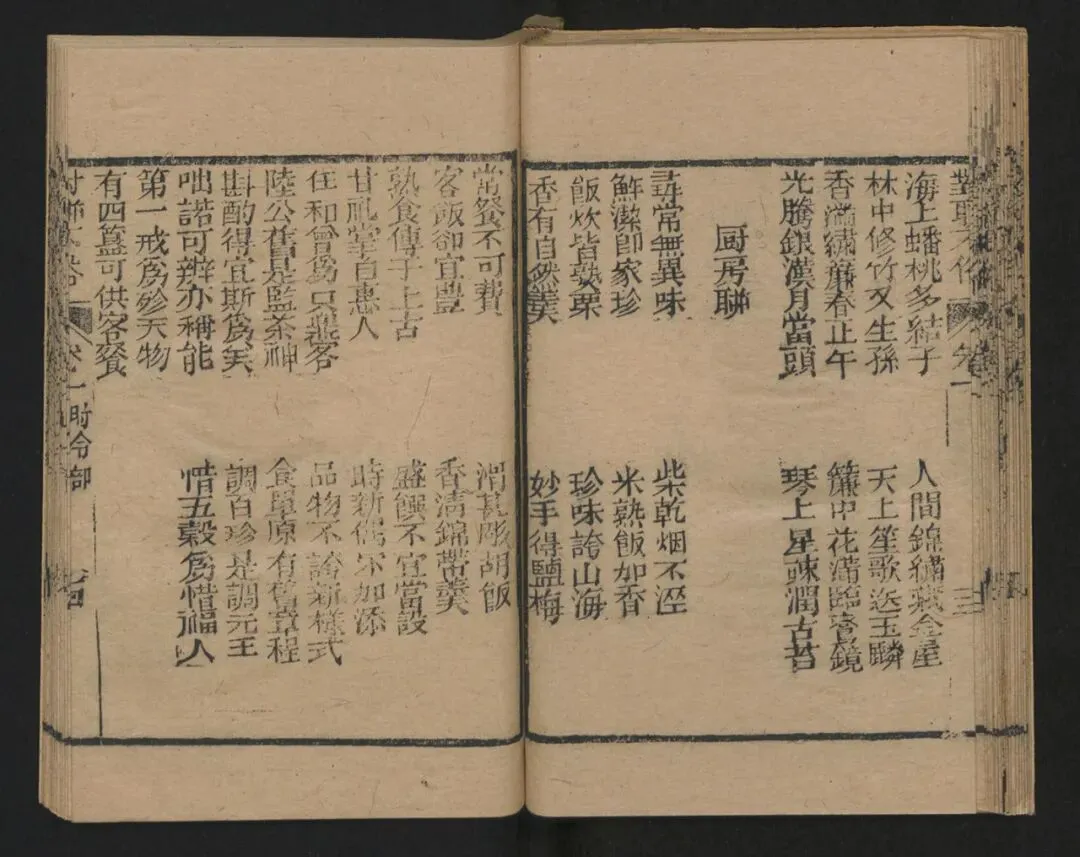 對聯不俗 卷一 三
海上蟠桃多結子 人間錦繡藏金屋
林中修竹又生孫 天上笙歌送玉麟
香滿繡簾春正午 簾中花滿臨鸞鏡
光騰銀漢月當頭 琴上星疎潤古苔
厨房聯
尋常無異味 柴乾烟不涇
鮮潔卽家珍 米熟飯加香
飯炊皆熟栗 珍味誇山海
香有自然羹 妙手得鹽梅
常餐不可費 滑甚彫胡飯
客飯卻宜豐 香清錦帶羹
熟食傳于上古 盛饌不宜當設
甘祀掌自惠人 時新偶尔加添
任和曾爲只燕客 品物不誇新樣式
陸公舊是監茶神 食單原有舊章程
斟酌得宜斯爲美 調百珍是調元王
咄諾可辨亦稱能 惜五穀爲惜福人
第一戒爲殄天物
有四簋可供客餐
卷一時令部 四